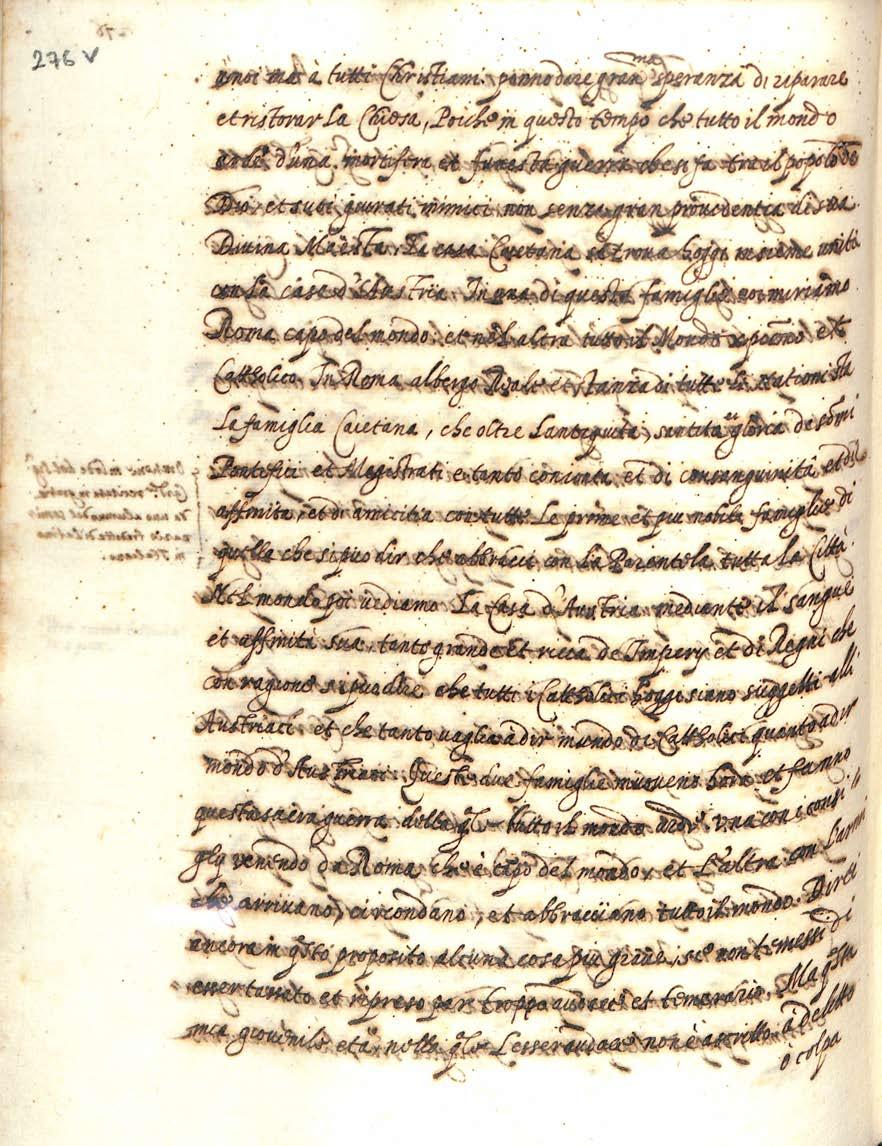 276 v
à noi ma à tutti Christiani ponno dare gran.ma speranza di riparare
et ristorar La Chiesa, Poiche in questo tempo che tutto il mondo
arde d'una mortifera et funesta guerra che si fa tra il popolo de
Dio, et suoi giurati inimici non senza gran providentia di sua
Divina Maesta, La casa Caetana si trova hoggi insieme unita
con La casa d'Austria. In una di queste famiglie noi miriamo
Roma capo del mondo: et nel altra tutto il Mondo xpiano et
Cattholico. In Roma albergo Reale et stanza di tutte le Nationi sta
La famiglia Caietana, che oltre L'antiquità, santità et gloria de somi
Pontefici et Magistrati e tanto conionta et di consanguinità et di
affinita, et di amicitia con tutte Le prime et piu nobile famiglie di
quella che si puo dir che abbracci con La Parentela tutta La Città.
Nel mondo poi vediamo La Casa d'Austria mediante il sangue
et affinità sua, tanto grande et ricca de Impery et di Regni che
con ragione si puo dire che tutti i Cattholici hoggi siano suggetti alli
Austriaci: et che tanto vaglia à dir mundo di Cattholici quanto à dir
mondo d'Austriaci. Queste due famiglie muoveno hora et fanno
questa sacra guerra della qle tutto il mondo arde. una con i consi
gli venendo da Roma che è capo del mondo, et L'altra con L'armi
che arrivano, circondano, et abbracciano tutto il mondo. Direi
ancora in qsto proposito alcuna cosa piu grave, se non temessi di
esser tassato et ripreso per troppo audace et temerario. Ma qsta
mia giovenile età, nella qle L'esser audace non è ascritto à delitto
ò colpa